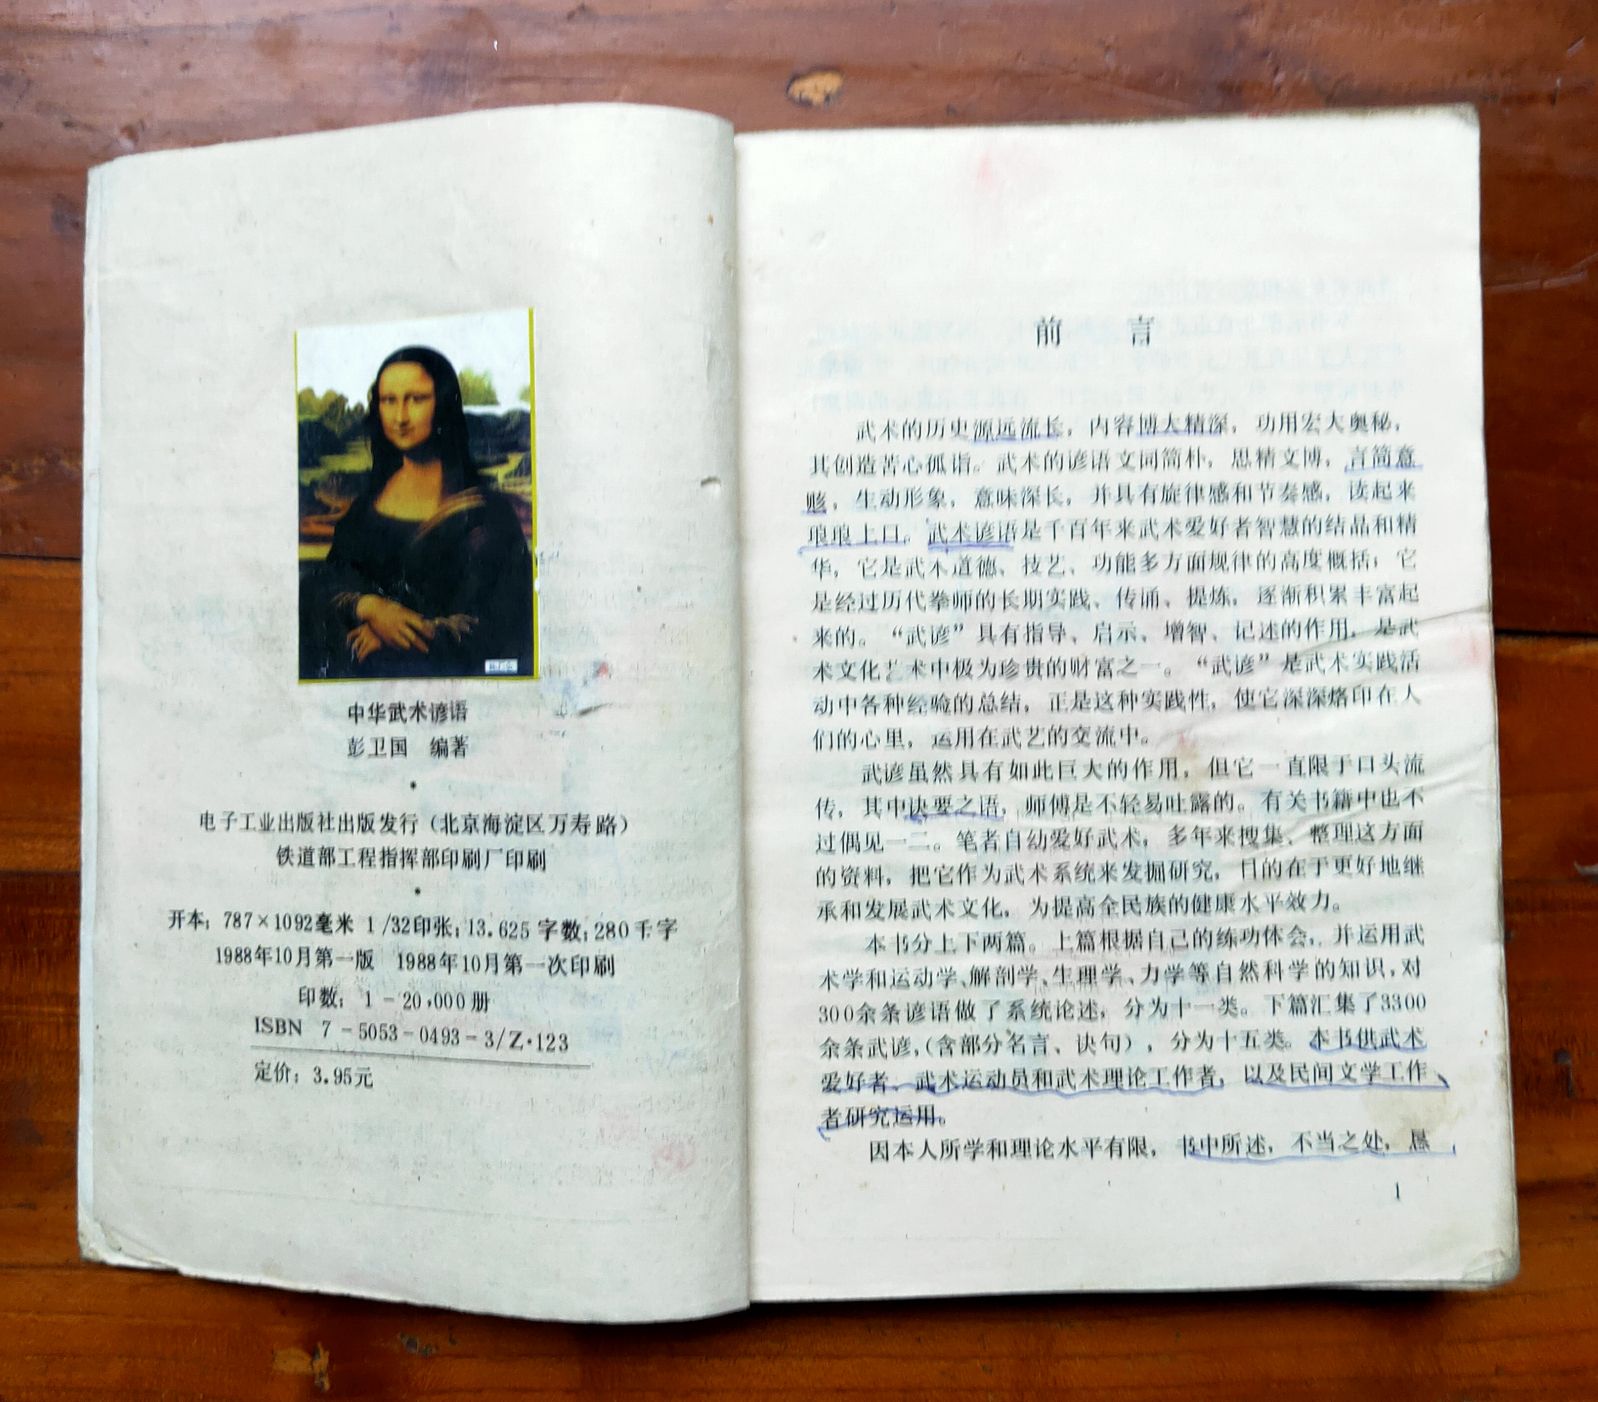 中华武术谚语
彭卫国 编著
电子工业出版社出版发行（北京海淀区万寿路）
铁道部工程指挥部印刷厂印刷
开本：787×1092毫米 1/32印张：13.625 字数：280千字
1988年10月第一版 1988年10月第一次印刷
印数：1－20,000册
ISBN 7－5053－0493－3/Z·123
定价：3.95元
前言
武术的历史源远流长，内容博大精深，功用宏大奥秘，
其创造苦心孤诣。武术的谚语文词简朴，思精文博，言简意
赅，生动形象，意味深长，并具有旋律感和节奏感，读起来
琅琅上口。武术谚语是千百年来武术爱好者智慧的结晶和精
华，它是武术道德、技艺、功能多方面规律的高度概括；它
是经过历代拳师的长期实践、传诵、提炼，逐渐积累丰富起
来的。“武谚”具有指导、启示、增智、记述的作用，是武
术文化艺术中极为珍贵的财富之一。“武谚”是武术实践活
动中各种经验的总结，正是这种实践性，使它深深烙印在人
们的心里，运用在武艺的交流中。
武谚虽然具有如此巨大的作用，但它一直限于口头流
传，其中诀要之语，师傅是不轻易吐露的。有关书籍中也不
过偶见一二。笔者自幼爱好武术，多年来搜集、整理这方面
的资料，把它作为武术系统来发掘研究，目的在于更好地继
承和发展武术文化，为提高全民族的健康水平效力。
本书分上下两篇。上篇根据自己的练功体会，并运用武
术学和运动学、解剖学、生理学、力学等自然科学的知识，对
300余条谚语做了系统论述，分为十一类。下篇汇集了3300
余条武谚，（含部分名言、诀句），分为十五类。本书供武术
爱好者、武术运动员和武术理论工作者，以及民间文学工作
者研究运用。
因本人所学和理论水平有限，书中所述，不当之处，恳
1